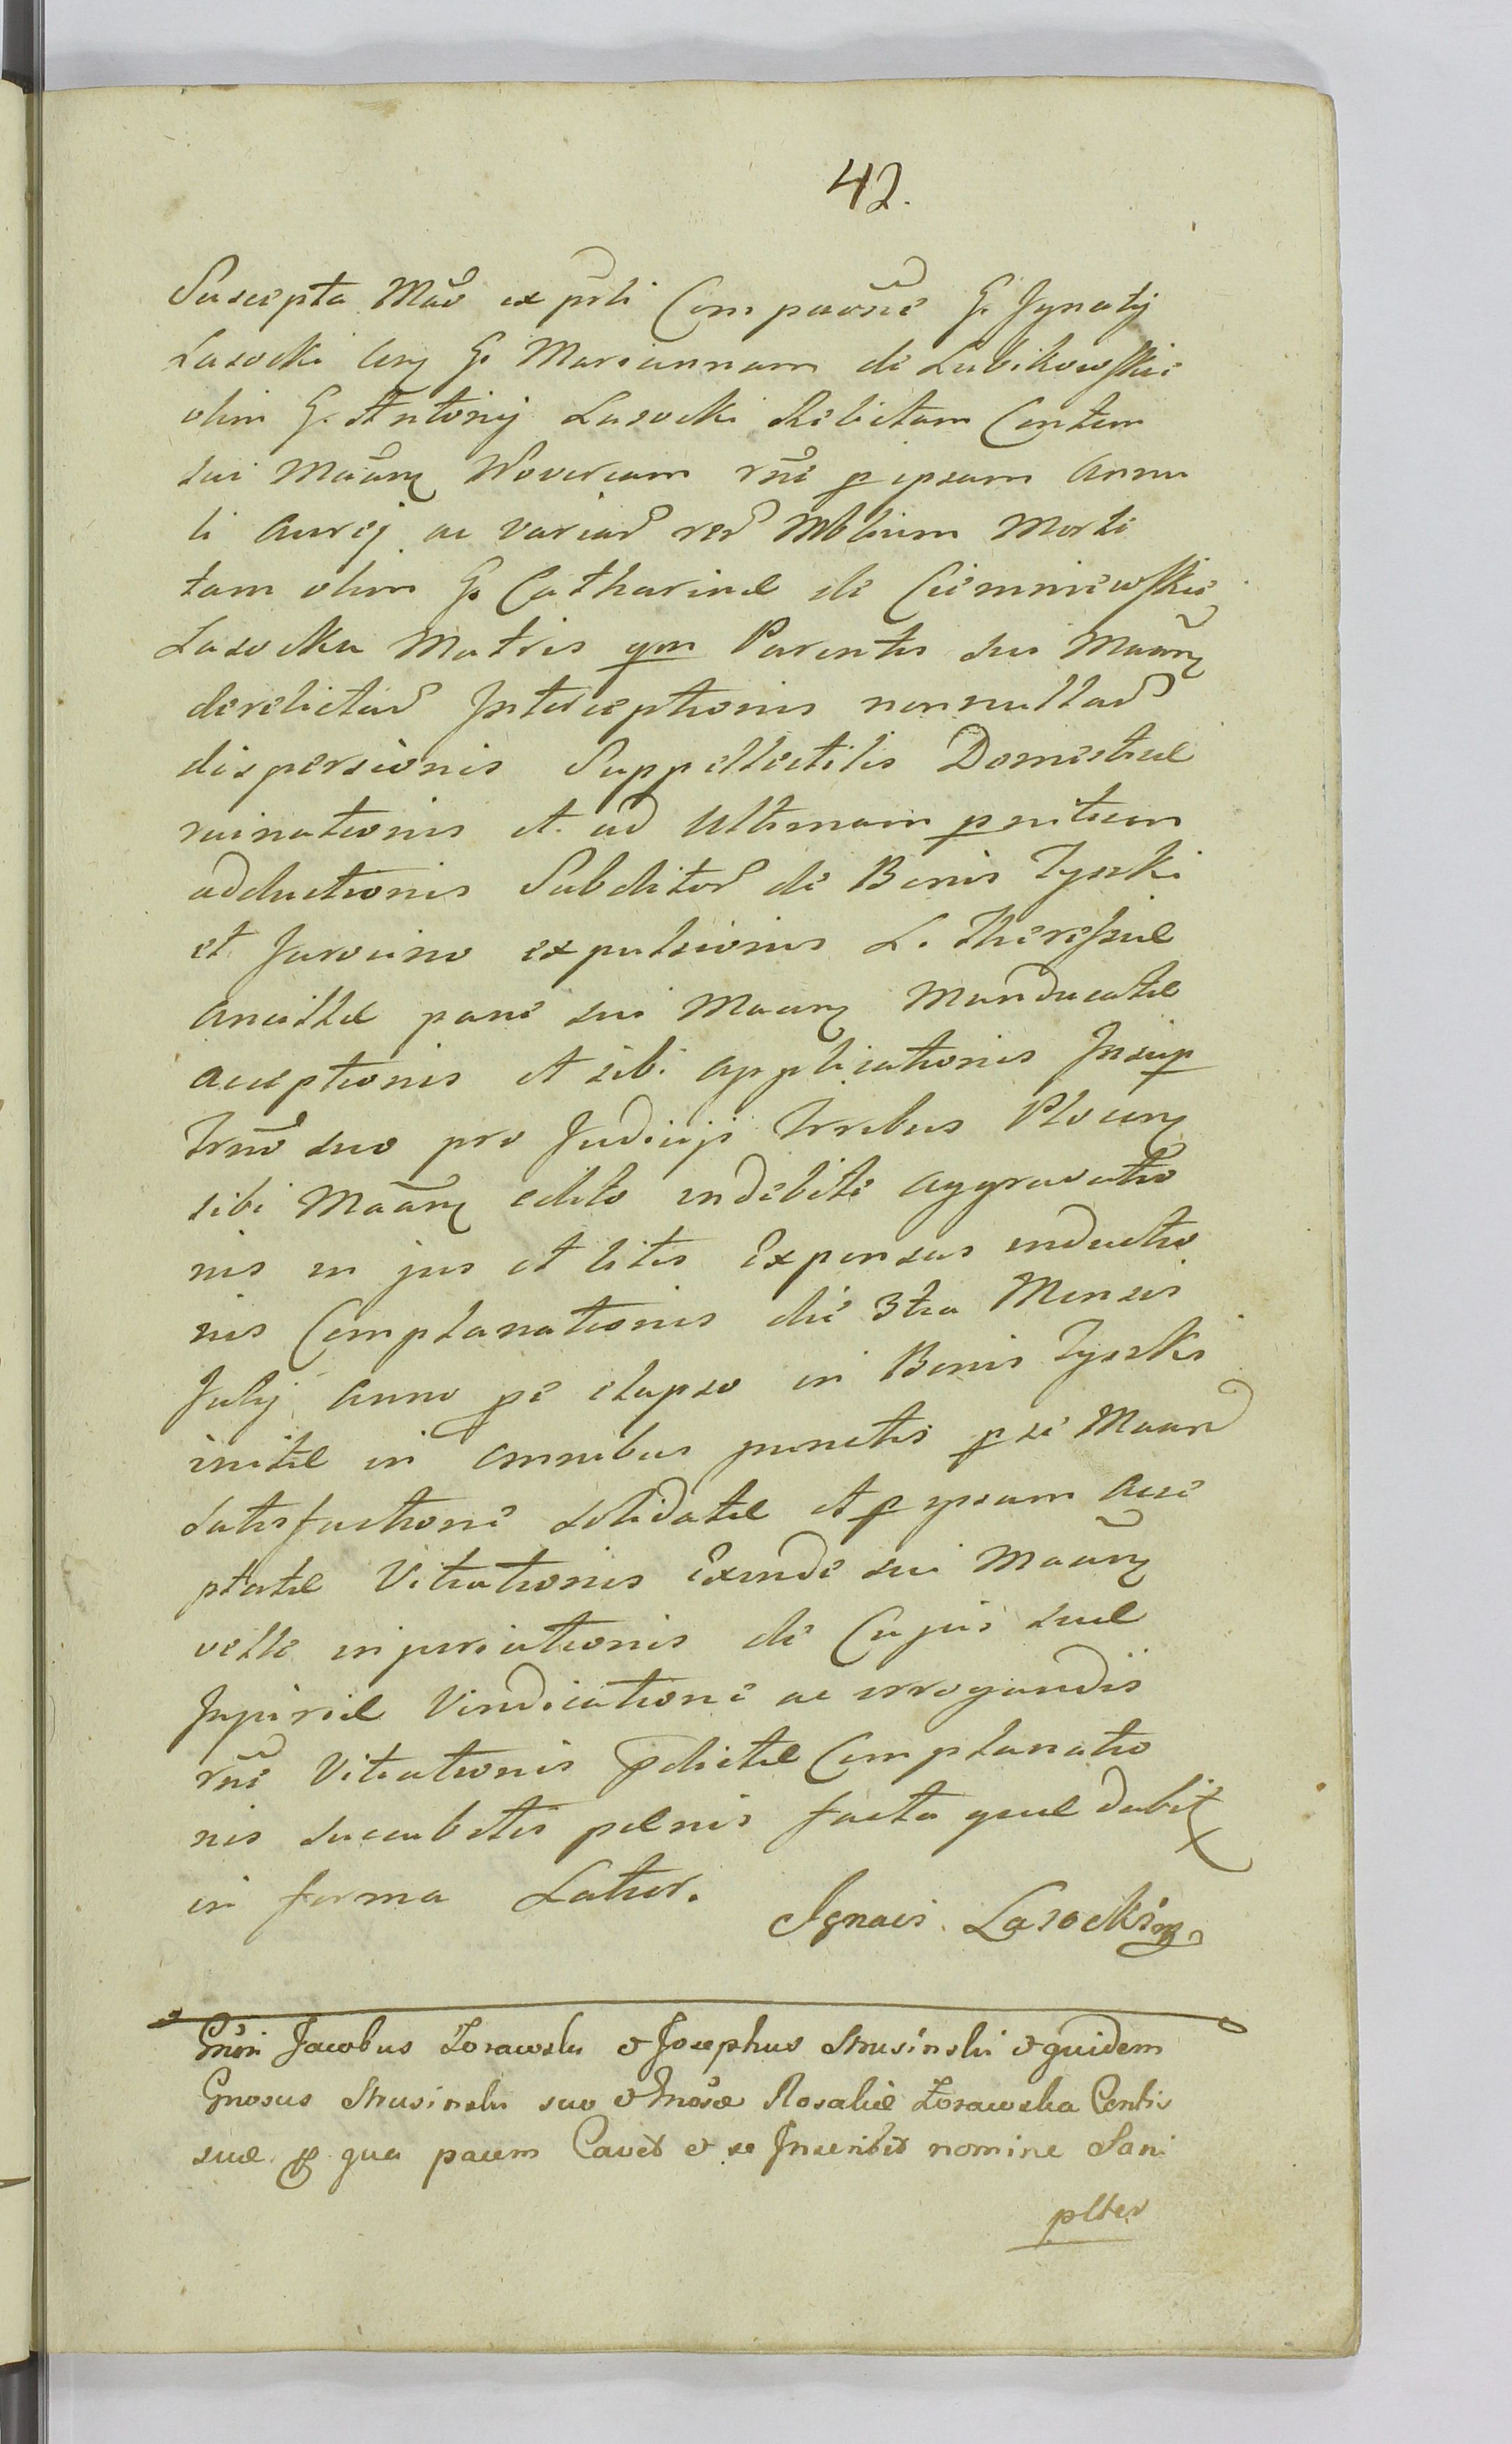 42.
Suscepta Mãõ ex prli Comparõne G. Jgnatij
Lasocki Crz G. Mariannam de Lubikowskie
olim G. Antonij Lasocki Relictam Contem
sui Mãarz Novercam rñe p ipsam annu
li aurej ac variar rer Mblium Morti
tam olim G. Catharinæ de Ciemniewskie
Lasocka Matris qm Parentis sui Mãarz
derelictar Jnterceptionis nonnullar
dispersionis Suppellectilis Domesticæ
ruinationis et ad Ultimam pnitiem
adductionis Subditor de Bonis Tyszki
et Jarocino expulsionis L. Theressiæ
ancillæ pane sui Maarz Manducatæ
acceptionis et sibi applicationis Jnsup
trmo suo pro Judicijs trrbus Plocarz
sibi Mãarz edito indebite aggravatio
nis in jus et litis Expensas inductio
nis Complanationis die 3tia Mensis
Julij anno pe elapso in Bonis Tyszki
initæ in omnibus punctis p se Maar
satisfactione solidatæ et p ipsam acce
ptatæ Vitiationis Exinde sui Mãarz
velle injuriationis de Cujus suæ
Jnjuriæ Vindicatione ac irrogandis
rñe Vitiationis pdictæ Complanatio
nis succubitis pænis facta quæ dabit
in forma Latior.
Jgnaci Lasocki mp
Gnõsi Jacobus Zorawski & Josephus Strusinski & quidem
Gnosus Strusinski suo & Gnosæ Rosaliæ Zorawska Contis
suæ p qua pacem Cavet & se Jnscribit nomine Sani
plter